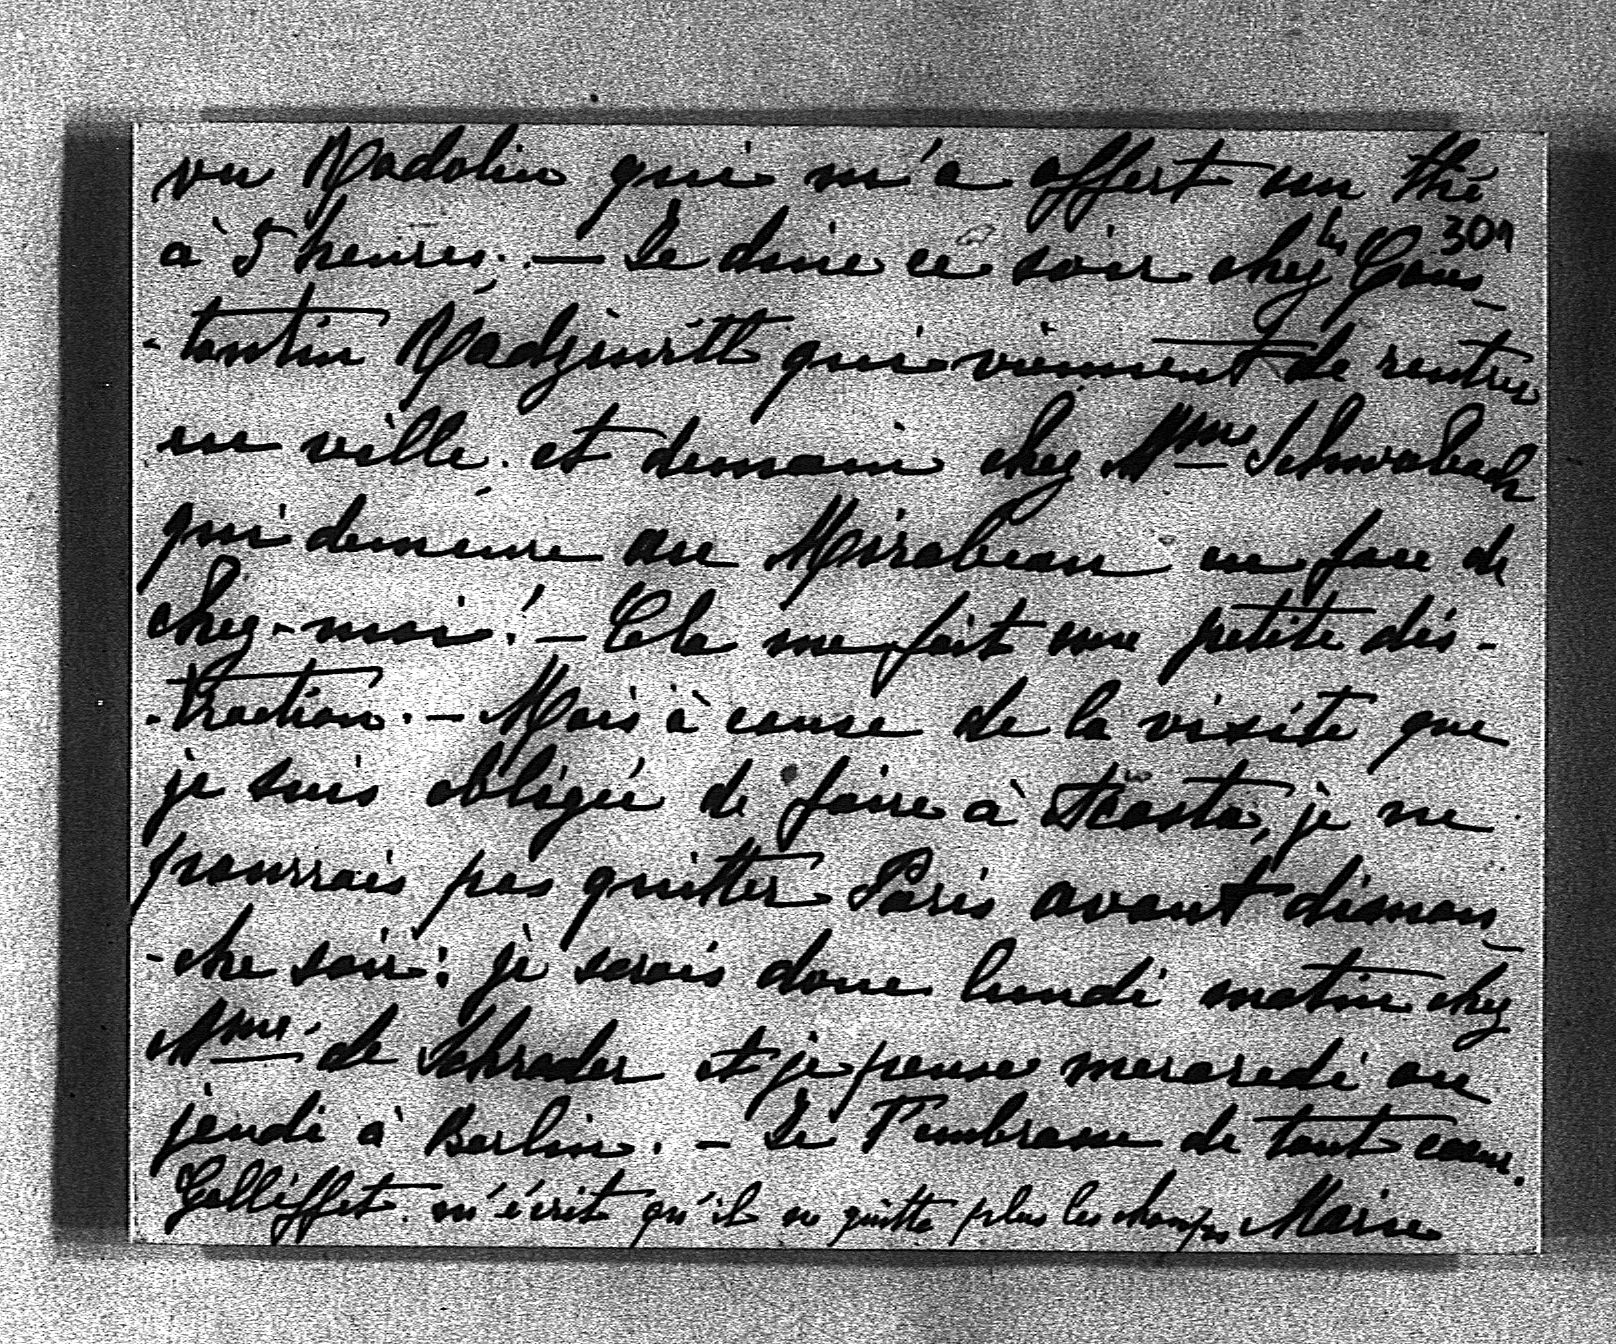 vu Radolin qui m'a offert un thé
301
à 5 heures. — Je dine ce soir chez les Cons-
-tantin Radziwill qui viennent de rentrer
en ville et demain chez Mme Schwabach
qui demeure au Mirabeau en face de
chez-moi! — Cela me fait une petite dis-
-traction. — Mais à cause de la visite que
je suis obligée de faire à Acosta, je ne
pourrais pas quitter Paris avant diman-
-che soir: je serais donc lundi matin chez
Mme de Schrader et je pense mercredi ou
jeudi à Berlin. — Je T'embrasse de tout cœur.
Galliffet m'écrit qu'il ne quitte plus les champs Marie